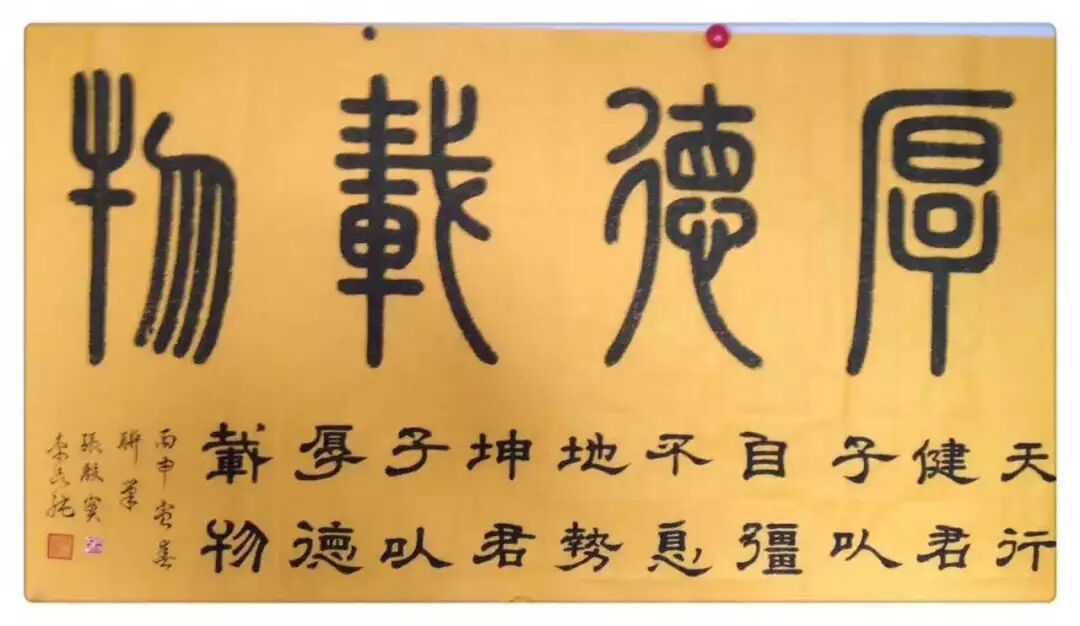 厚德載物
天行
健君
子以
自彊
不息
地勢
坤君
子以
厚德
載物
丙申孟春
聯筆
張
李